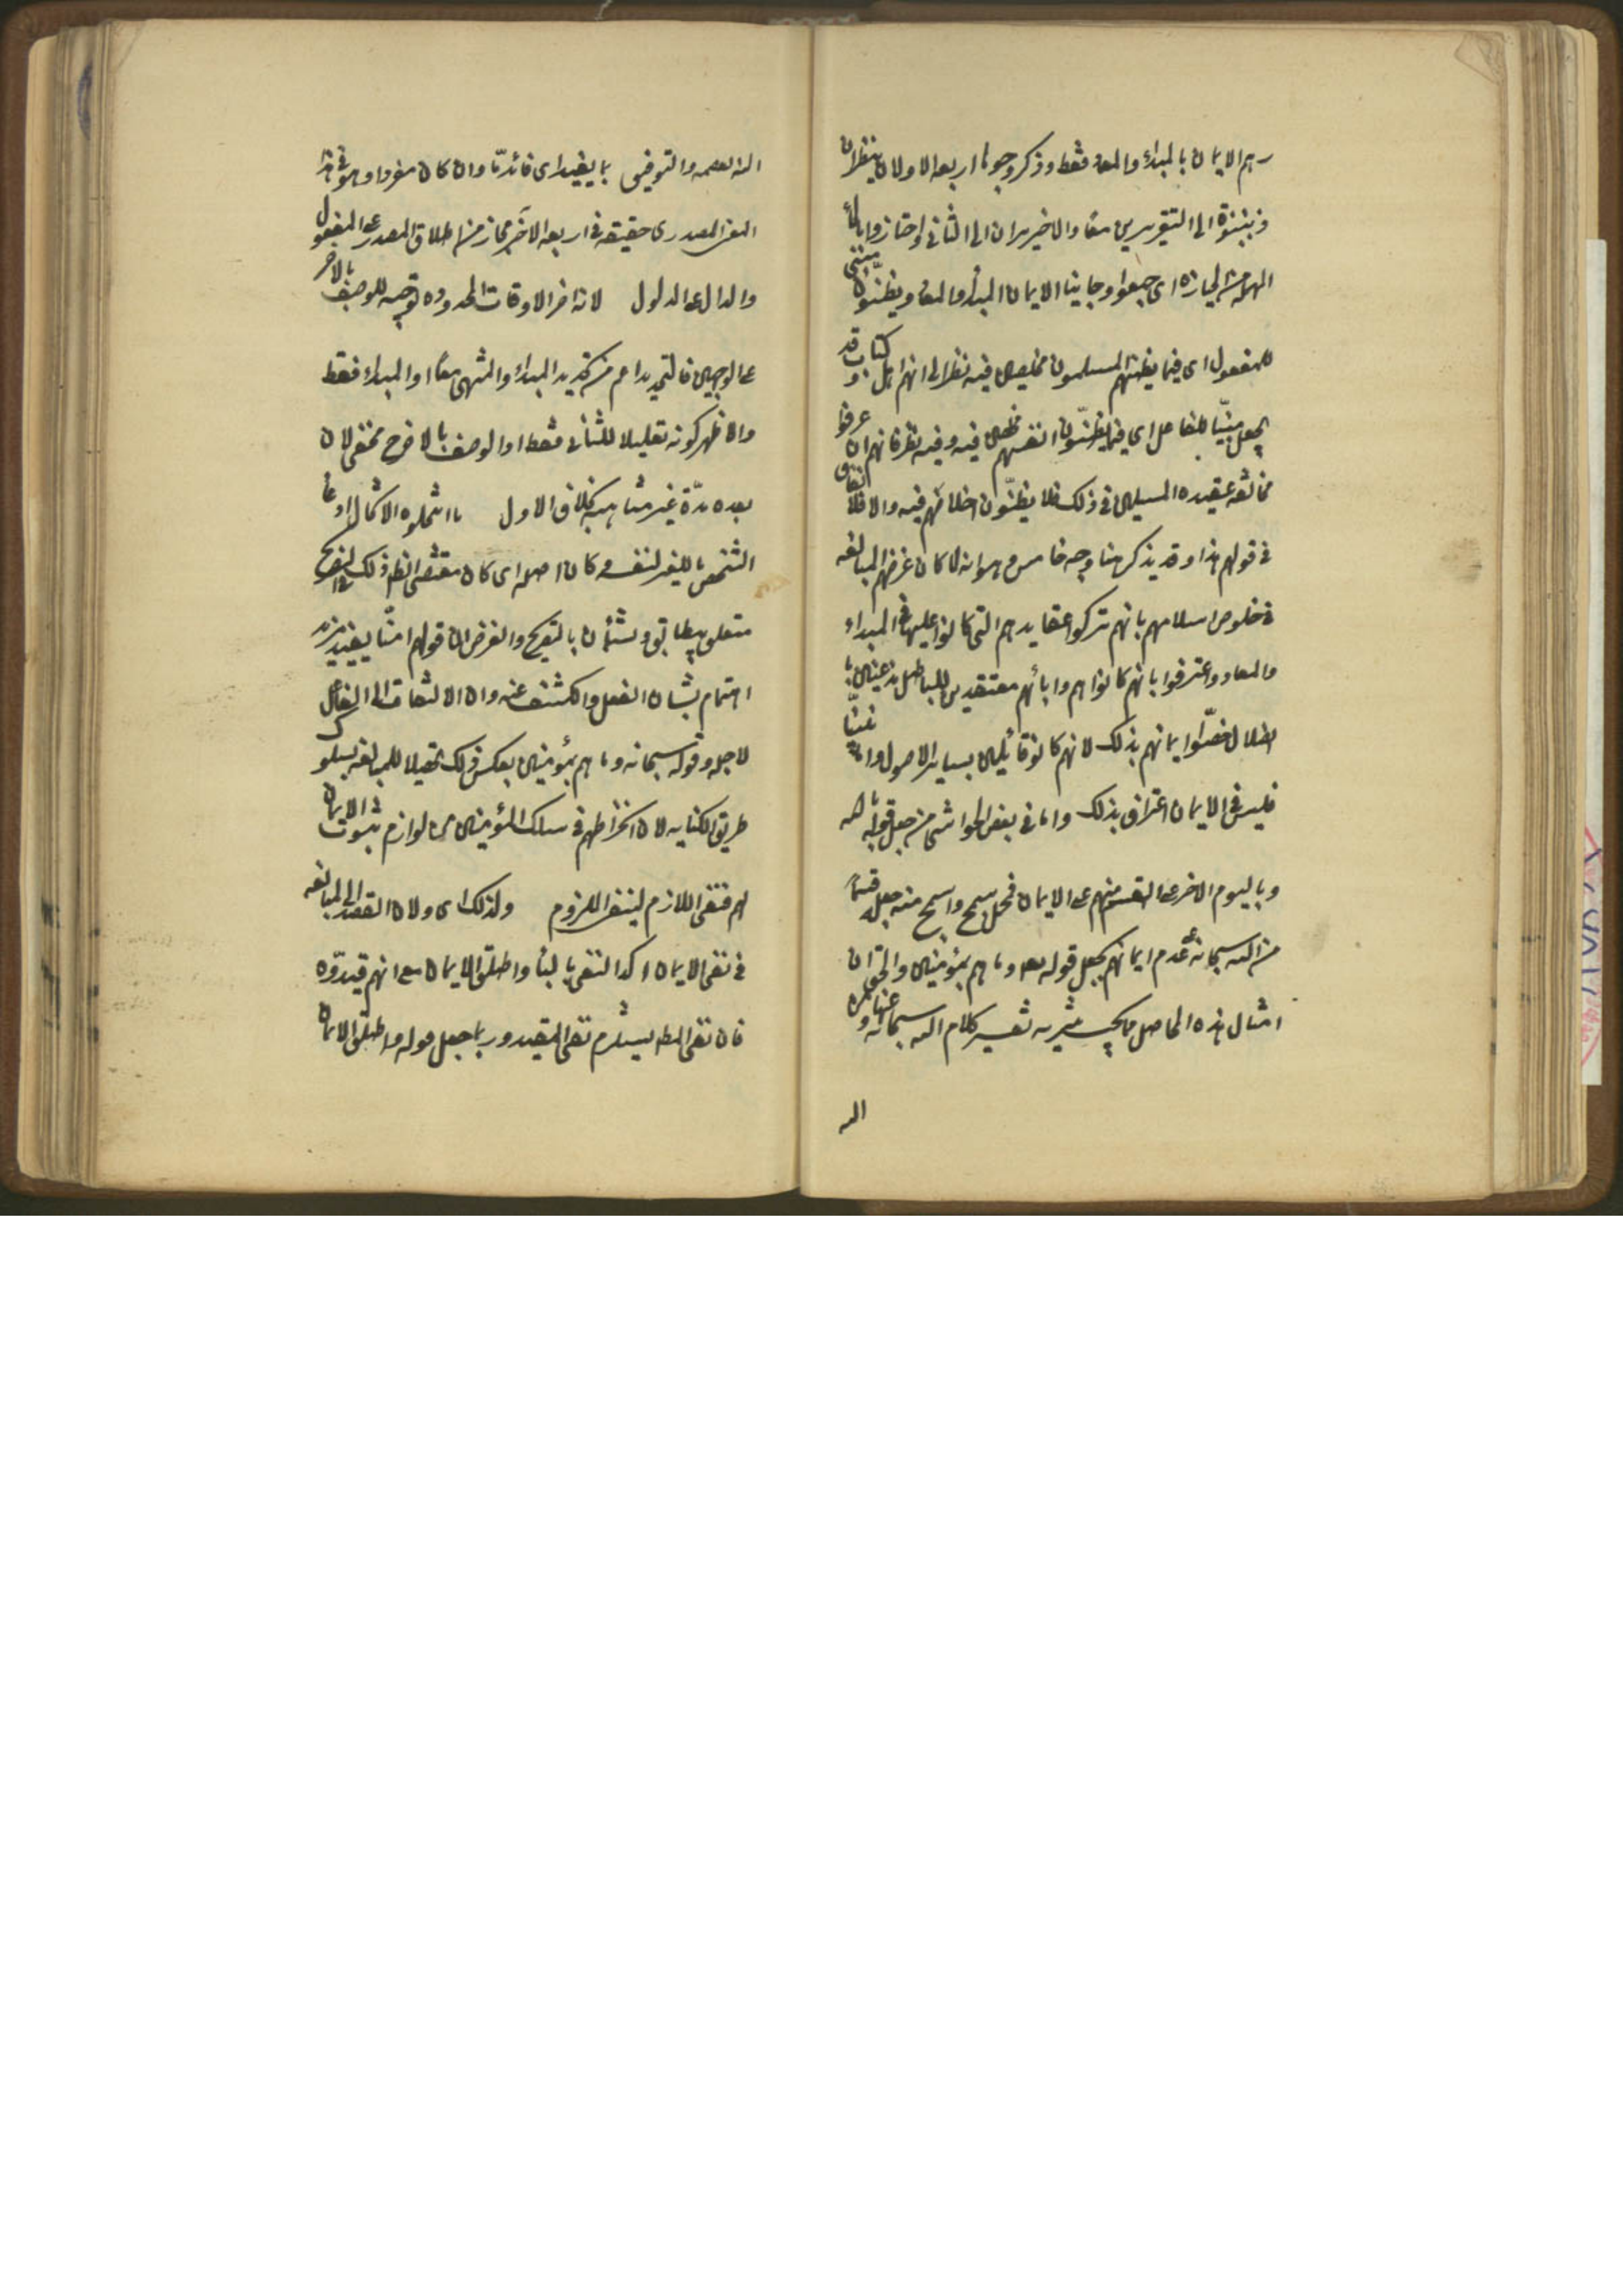 رهم الايمان بالمبداء والمعاد فقط وذكر وجوها اربعه الاولان ينظران
الى التقريرين معا والاخيران الى الثاني واحتازوا بالحاء
المهملة من الحيازة اى جمعوا وجانبا الايمان المبدأ والمعاد ويظنون مبنى
للمفعول اى فيما يظنهم المسلمون مخلصين فيه نظرا الى انهم اهل كتاب وقد
يجعل مبنيّا للفاعل اى فيما يظنّون انفسهم مخلصين فيه وفيه نظر فانهم ان عرفوا
مخالفه عقيده المسلمين فى ذلك فلا يظنّون اخلاصهم فيه والا فلا نفاق
فى قولهم هذا وقد يذكر هنا وجه خامس وهو انه لما كان غرضهم المبالغه
فى خلوص اسلامهم بانهم تركوا عقايدهم التى كانوا عليها فى المبداء
والمعاد واعترفوا بانهم كانوا هم وابائهم معتقدين للباطل مذعنين با
لضلال خصّوا ايمانهم بذلك لانهم كانوا قائلين بساير الاصول واما نبيّنا
فليس فى الايمان اعتراف بذلك واما فى بعض الحواشى من جعل قوله بالله
وباليوم الاخر على القسم منهم على الايمان فمحل سمج واسمج منه جعله قسما
من الله سبحانه على عدم ايمانهم بجعل قوله بعد وما هم بمؤمنين والحق ان
امثال هذه المحامل مما يجب تنزيه تفسير كلام الله سبحانه عنها و
الله
الله العصمه والتوفيق بما يفيد اى فائدة ما وان كان مفردا وهو فى هذا
المعنى المصدرى حقيقه فى اربعه الاخر مجاز من اطلاق المصدر على المفعول
والدال على المدلول لانه اخر الاوقات المحدوده توجيه للوصف بالاخر
على الوجهين فالتحديد اعم من تحديد المبداء والمنتهى معا او المبداء فقط
والاظهر كونه تعليلا للثانى فقط اذ الوصف بالاخر ح مخفى لان
بعده مدّة غير متناهيه بخلاف الاول ما انتحلوه الانتحال ادعا
الشخص ما للغير لنفسه وكان اصله اى كان مقتضى الظ ذلك
متعلق بيطابق وشأن بالتصريح والغرض ان قولهم امنّا يفيد مزيد
اهتمام بشان الفعل والكشف عنه وان الالتفات الى الفاعل
لاجله وقوله سبحانه وما هم بمؤمنين بعكس ذلك تحصيلا للمبالغه بسلوك
طريق الكنايه لان انخراطهم فى سلك المؤمنين من لوازم ثبوت الايمان
لهم فنفى اللازم لينفى الملزوم ولذلك اى ولان القصد الى المبالغه
فى نفى الايمان اكد النفى بالباء واطلق الايمان مع انهم قيدوه
فان نفى المطلق يستلزم نفى المقيد وربما جعل قوله واطلق الايمان